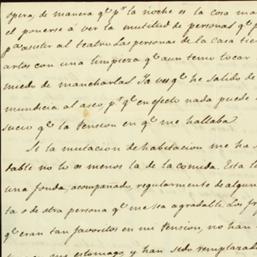 opera, de manera qe pa la noche es la cosa ma
el ponerse á ver la multitud de personas qe p
pa asistir al teatro. Las personas de la casa tie
artos con una limpieza qe aun temo tocar
miedo de mancharlas. Ya ve qe he salido de
mundicia al aseo pr qe en efecto nada puede
sucio qe la Pension en qe me hallaba.
Si la mutacion de habitacion me ha s
table no lo es menos la de la comida. Esta l
una fonda, acompañado regularmente de algun
ta o de otra persona qe me sea agradable. Los fr
qe eran tan favoritos en mi Pension, no han
mi estomago, y han sido remplazado